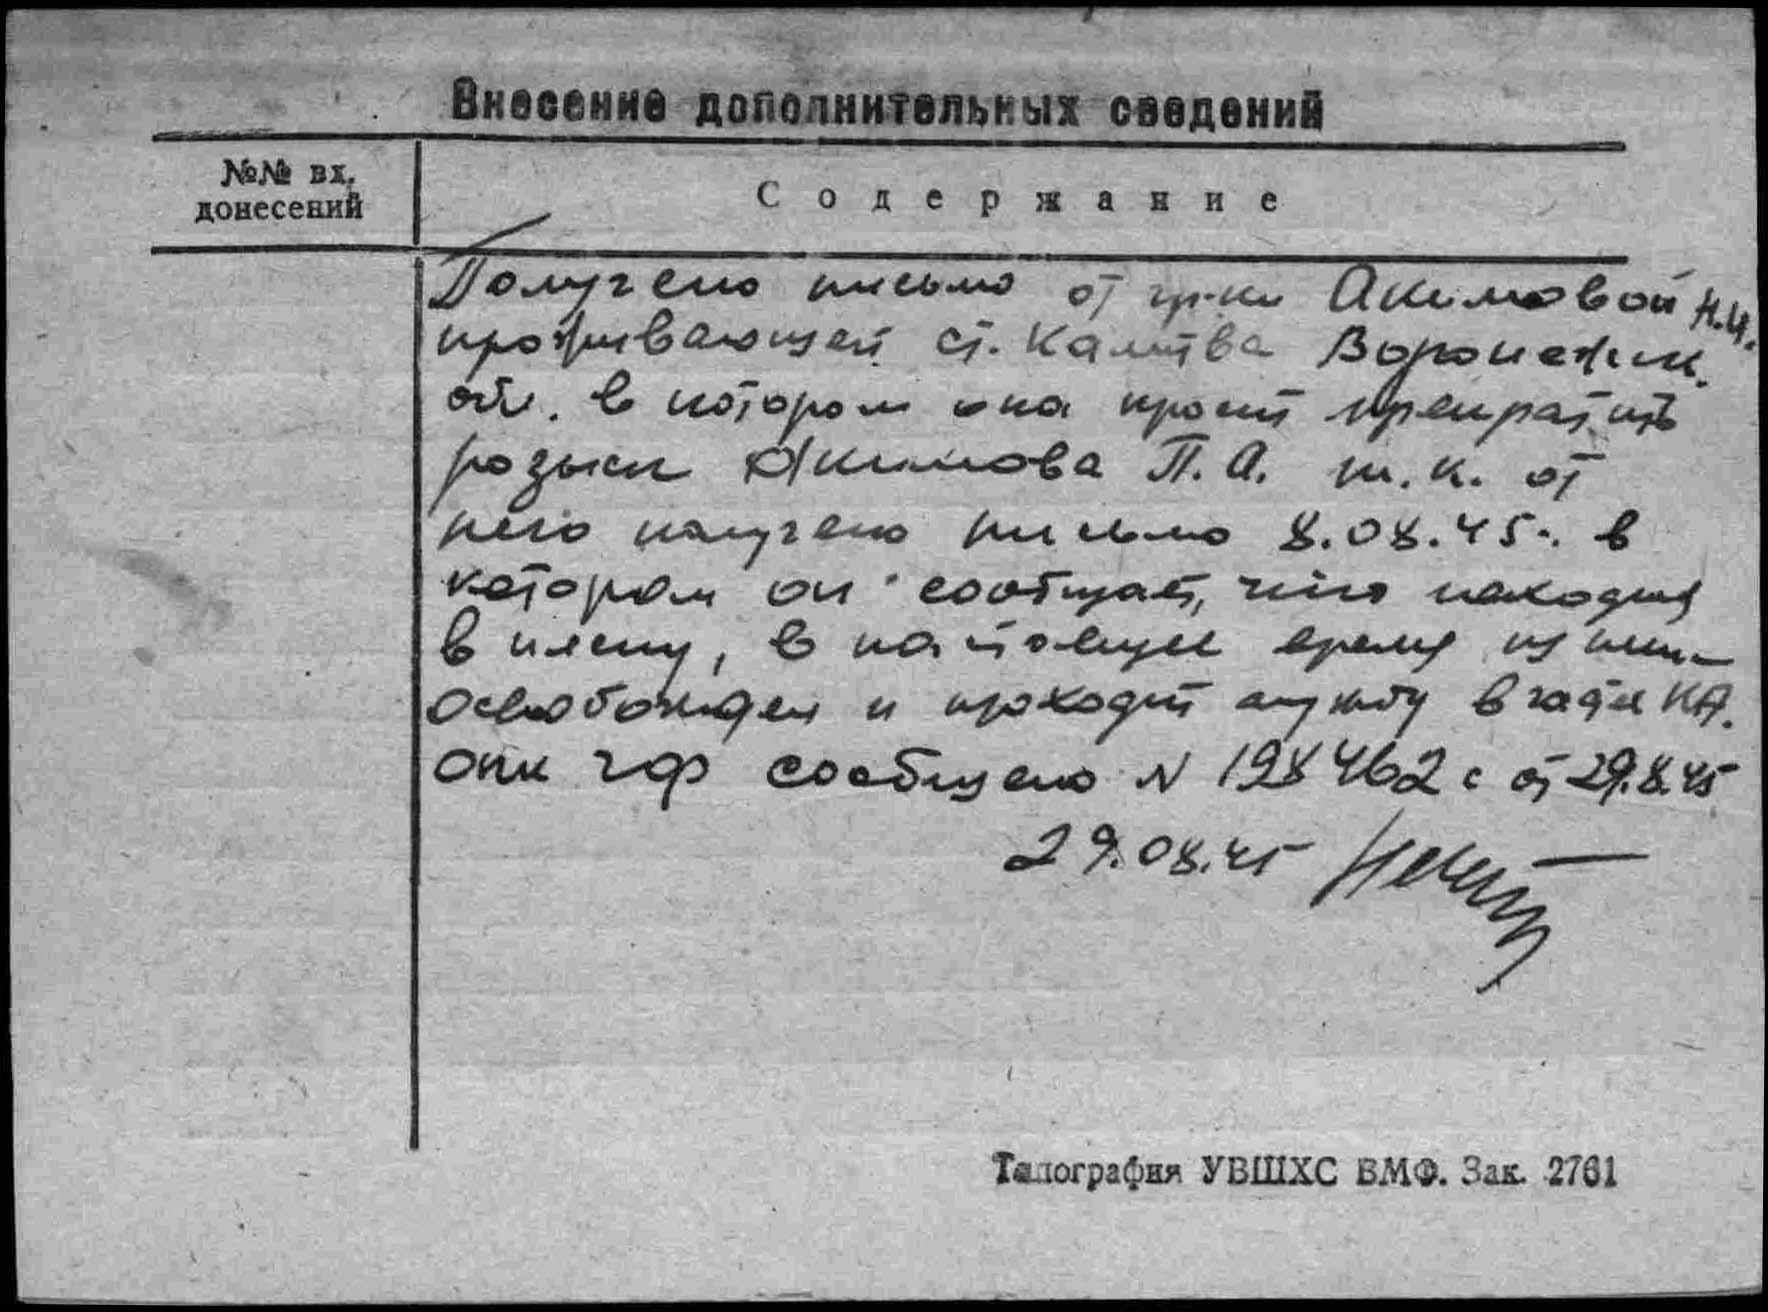 Внесение дополнительных сведений
№№ вх.
донесений
Содержание
Получено письмо от гр-ки Акимовой Н.И.
проживающей ст. Калитва Воронежск.
обл. в котором она просит прекратить
розыск Акимова П.А. т.к. от
него получено письмо 8.08.45г. в
котором он сообщает, что находился
в плену, в настоящее время из плена
освобожден и проходит службу в части КА.
ОПК ЧФ сообщено N 198462с от 29.8.45
29.08.45
Типография УВШХС ВМФ. Зак. 2761